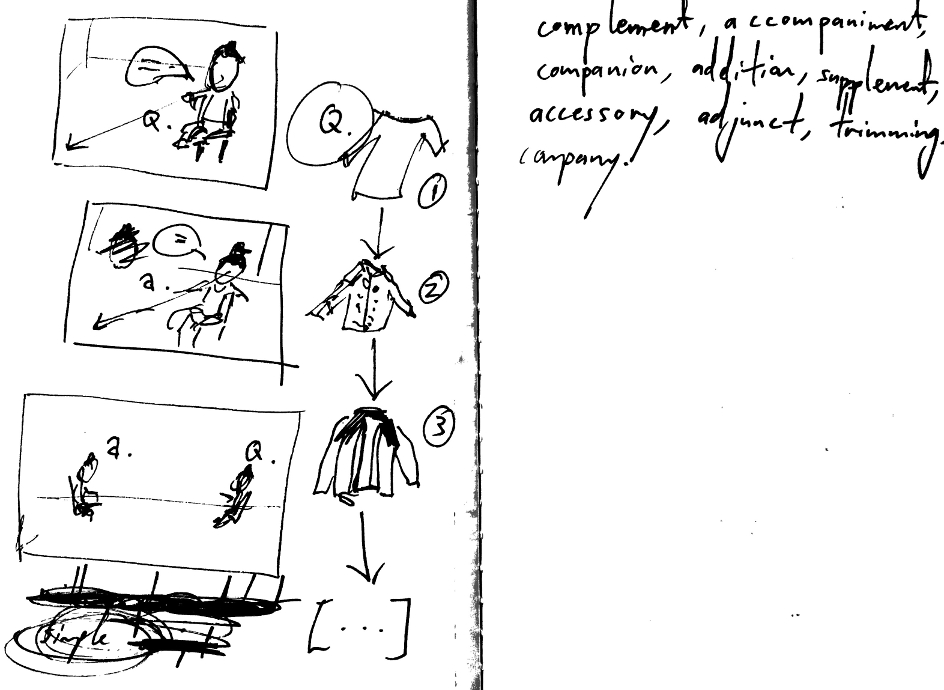 Q.
Q.
1
a.
2
a.
Q.
3
simple
[...]
complement, accompaniment,
companion, addition, supplement,
accessory, adjunct, trimming,
company.